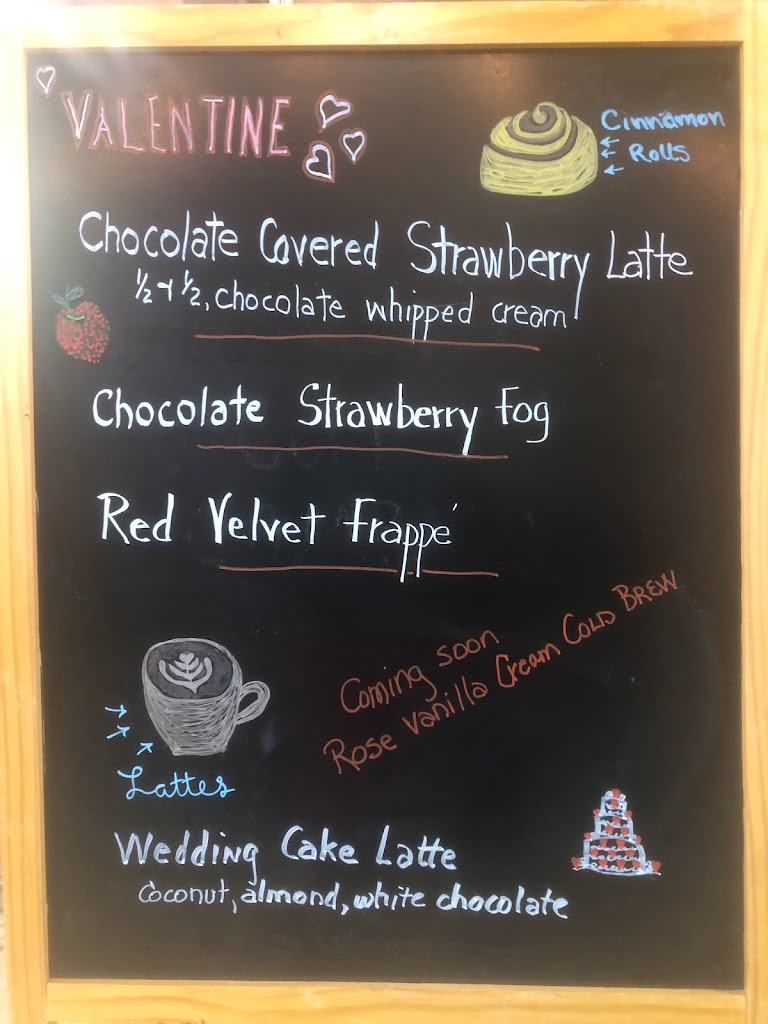 VALENTINE
Cinnamon
Rolls
Chocolate Covered Strawberry Latte
½ & ½, chocolate whipped cream
Chocolate Strawberry Fog
Red Velvet Frappé
Coming soon
Rose Vanilla Cream Cold Brew
Lattes
Wedding Cake Latte
Coconut, almond, white chocolate